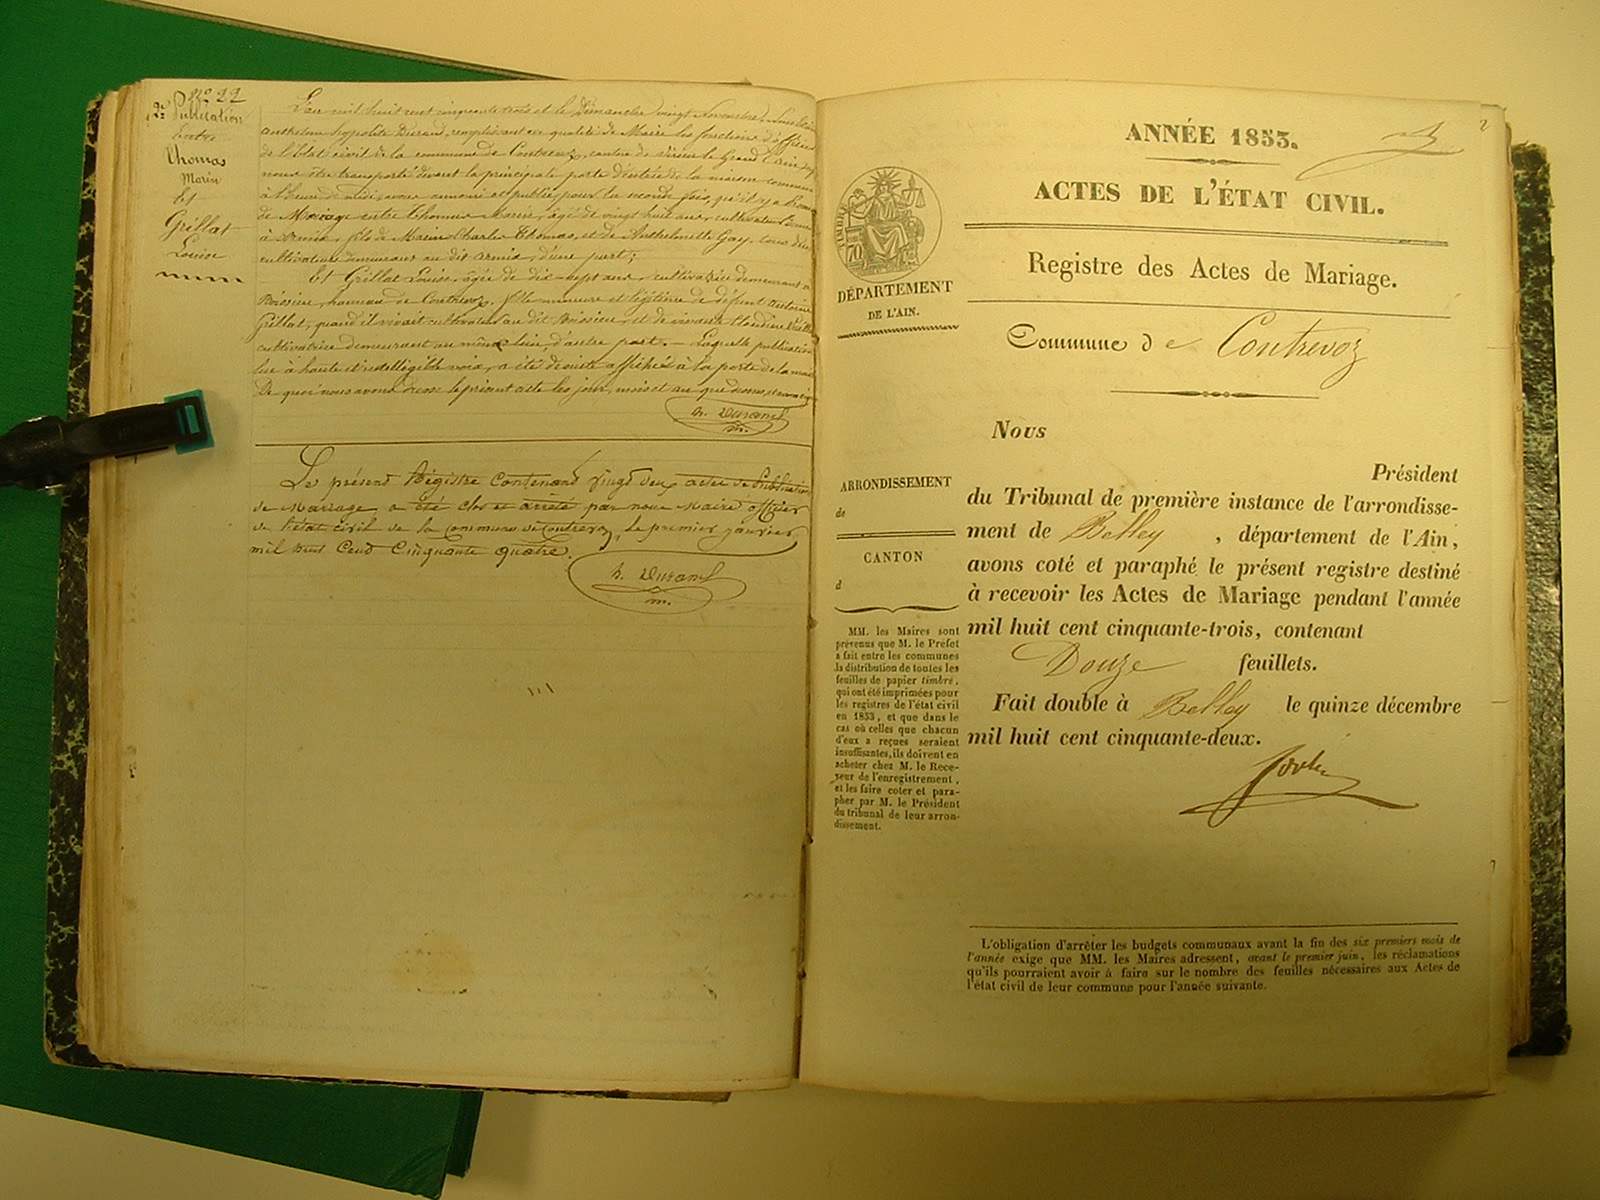 N° 22
2e Publication
Entre
Thomas
Marin
Et
Grillat
Louise
L'an mil huit cent cinquante trois et le Dimanche vingt Novembre, Nous
anthelme hyppolite Durand, remplissant en qualité de Maire les fonctions d'officier
de l'état civil de la commune de Contrevoz, canton de Virieu le Grand (Ain)
nous être transporté devant la principale porte d'entrée de la maison commune
à l'heure de midi, avons annoncé et publié pour la seconde fois, qu'il y a
de Mariage entre Thomas Marin, âgé de vingt huit ans, cultivateur
à armix, fils de Marin Charles Thomas, et de Anthelmette Gay, tous deux
cultivateurs demeurant au dit armix, d'une part;
Et Grillat Louise, âgée de dix-sept ans, cultivatrice demeurant à
Boissieu, hameau de Contrevoz, fille mineure et légitime de défunt antoine
Grillat, quand il vivait cultivateur au dit Boissieu, et de vivante Claudine
cultivatrice demeurant au même lieu, d'autre part. — Laquelle publication
lue à haute et intelligible voix, a été de suite affichée à la porte de la
De quoi nous avons dressé le présent acte les jour, mois et an que dessus,
h. Durand
m.
Le présent Régistre Contenant Vingt deux actes de Publication
de Mariage a été clos et arrêté par nous Maire officier
de l'état civil de la Commune de Contrevoz, le premier janvier
mil huit Cent Cinquante quatre.
h. Durand
m.
2
ANNÉE 1853.
ACTES DE L'ÉTAT CIVIL.
Registre des Actes de Mariage.
TIMBRE
70
DÉPARTEMENT
DE L'AIN.
Commune de Contrevoz
Nous
Président
du Tribunal de première instance de l'arrondisse-
ment de Belley, département de l'Ain,
avons coté et paraphé le présent registre destiné
à recevoir les Actes de Mariage pendant l'année
mil huit cent cinquante-trois, contenant
Douze feuillets.
Fait double à Belley le quinze décembre
mil huit cent cinquante-deux.
ARRONDISSEMENT
de
CANTON
d
MM. les Maires sont
prévenus que M. le Préfet
a fait entre les communes
la distribution de toutes les
feuilles de papier timbré,
qui ont été imprimées pour
les registres de l'état civil
en 1853, et que dans le
cas où celles que chacun
d'eux a reçues seraient
insuffisantes, ils doivent en
acheter chez M. le Rece-
veur de l'enregistrement,
et les faire coter et para-
pher par M. le Président
du tribunal de leur arron-
dissement.
L'obligation d'arrêter les budgets communaux avant la fin des six premiers mois de
l'année exige que MM. les Maires adressent, avant le premier juin, les réclamations
qu'ils pourraient avoir à faire sur le nombre des feuilles nécessaires aux Actes de
l'état civil de leur commune pour l'année suivante.